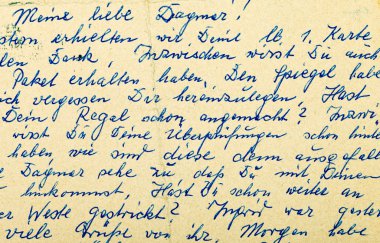 Meine liebe Dagmar!
stern erhielten wir Deine lb 1. Karte
len Dank, Inzwischen wirst Du auch
Paket erhalten haben, Den Spiegel habe
ich vergessen Dir hereinzulegen, Hast
Dein Regal schon angemacht? Inzwi
wirst Du Deine Überprüfungen schon hinte
haben, wie sind diese denn ausgefall
e Dagmar sehe zu, daß Du mit Deinen
hinkommst. Hast Du schon weiter an
er Weste gestrickt? Ingrid war gester
viele Grüße von ihr, Morgen habe